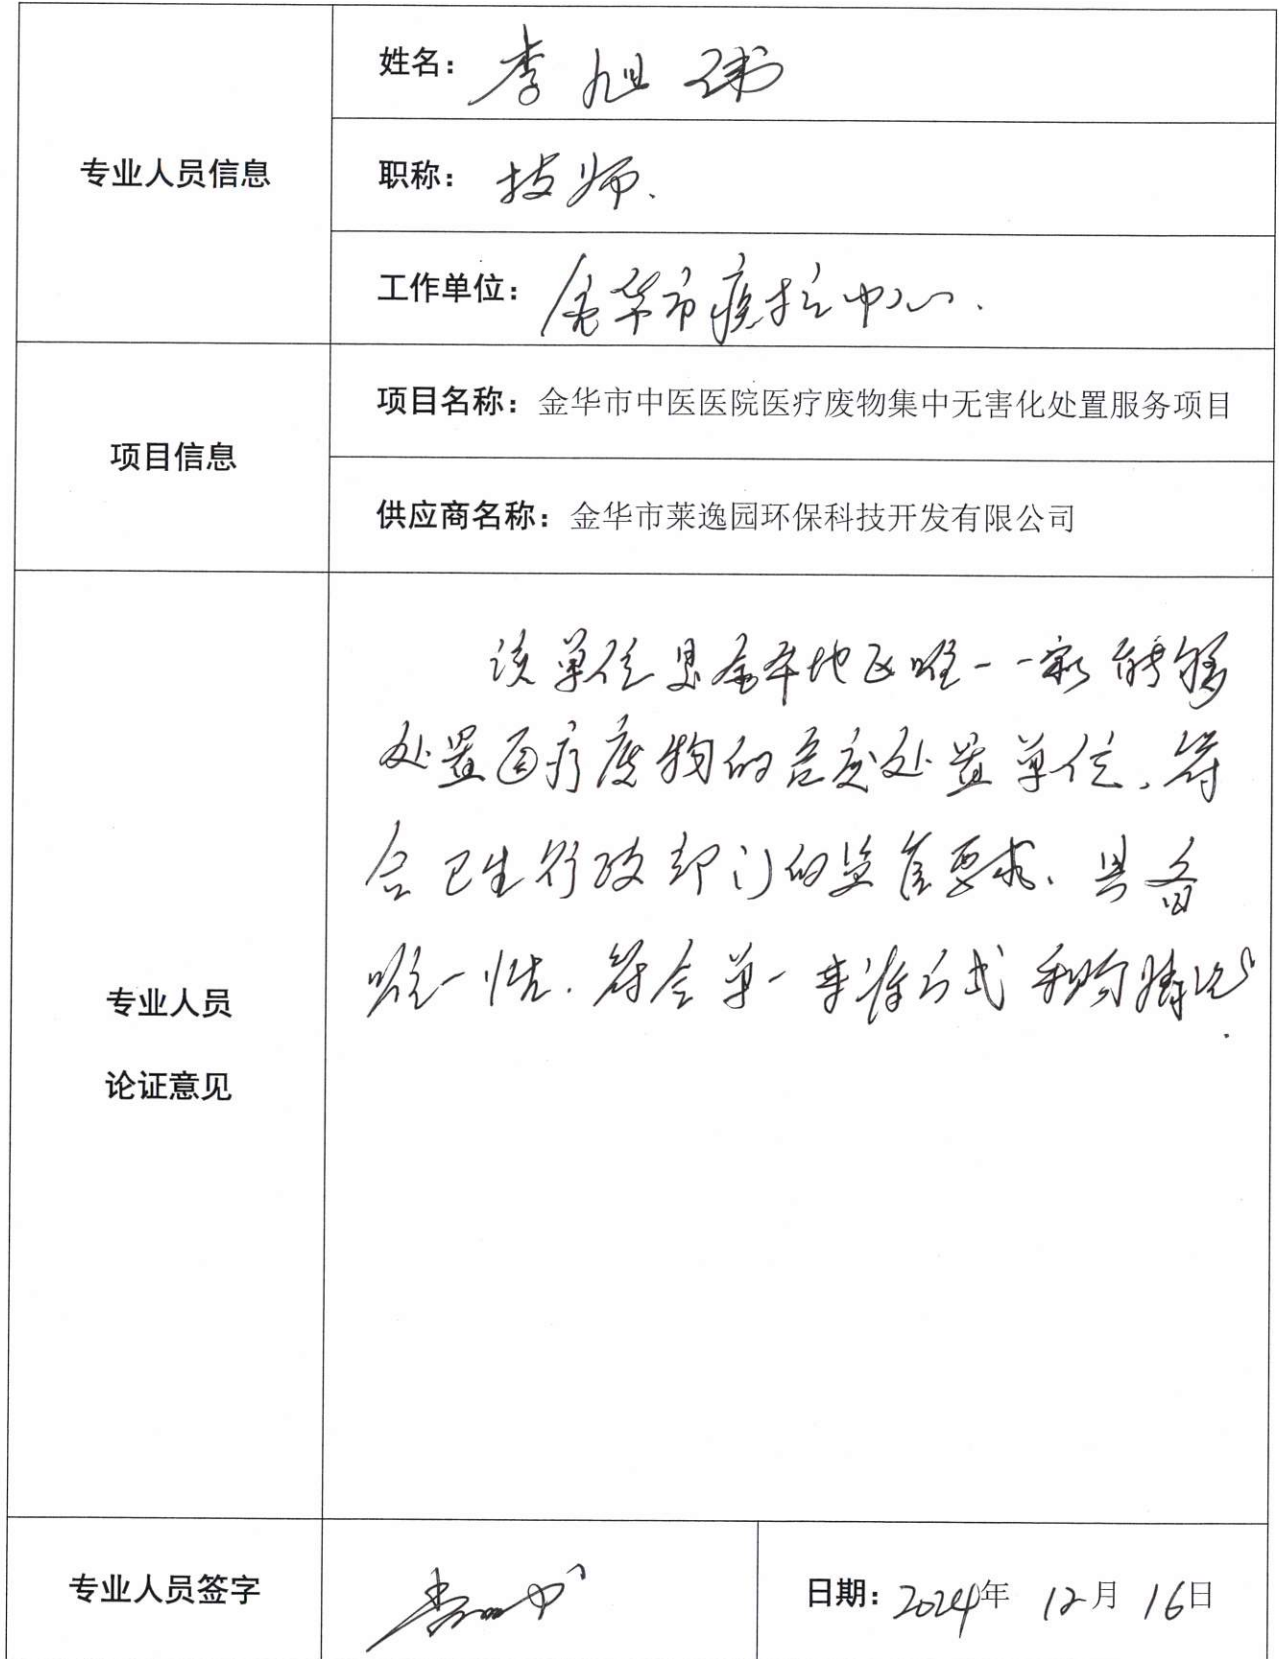 专业人员信息
姓名：李旭
职称：技师.
工作单位：金华市疾控中心.
项目信息
项目名称：金华市中医医院医疗废物集中无害化处置服务项目
供应商名称：金华市莱逸园环保科技开发有限公司
专业人员
论证意见
该单位是金华地区唯一一家能够
处置医疗废物的处置单位、符
合卫生行政部门的监管要求、具备
唯一性.符合单一来源方式采购情况.
专业人员签字
日期：2024年 12月 16日